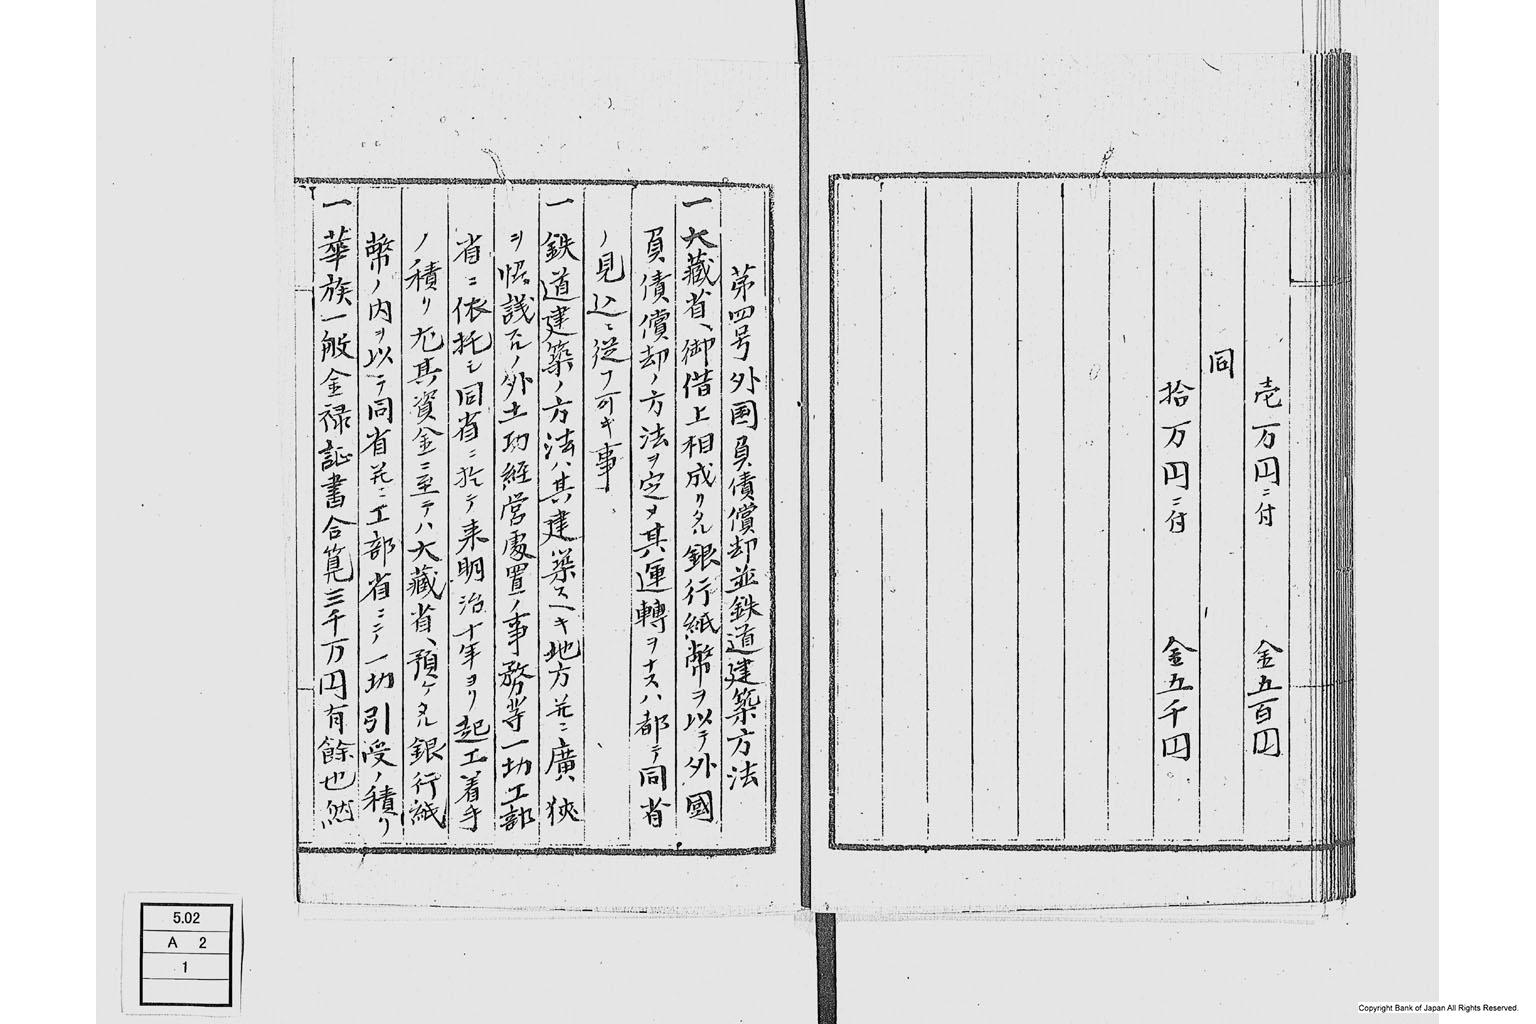 壱万円ニ付　金五百円
同
拾万円ニ付　金五千円
第四号外国負債償却並鉄道建築方法
一大蔵省ヘ御借上相成リタル銀行紙幣ヲ以テ外國
負債償却ノ方法ヲ定メ其運轉ヲナスハ都テ同省
ノ見込ニ従フ可キ事
一鉄道建築ノ方法ハ其建築スヘキ地方并ニ廣狭
ヲ協議スルノ外土功経営處置ノ事務等一切工部
省ニ依托シ同省ニ於テ来明治十年ヨリ起工着手
ノ積リ尤其資金ニ至テハ大藏省ヘ預ケタル銀行紙
幣ノ内ヲ以テ同省并ニ工部省ニテ一切引受ノ積リ
一華族一般金禄証書合筭三千万円有餘也然
5.02
A 2
1
Copyright Bank of Japan All Rights Reserved.